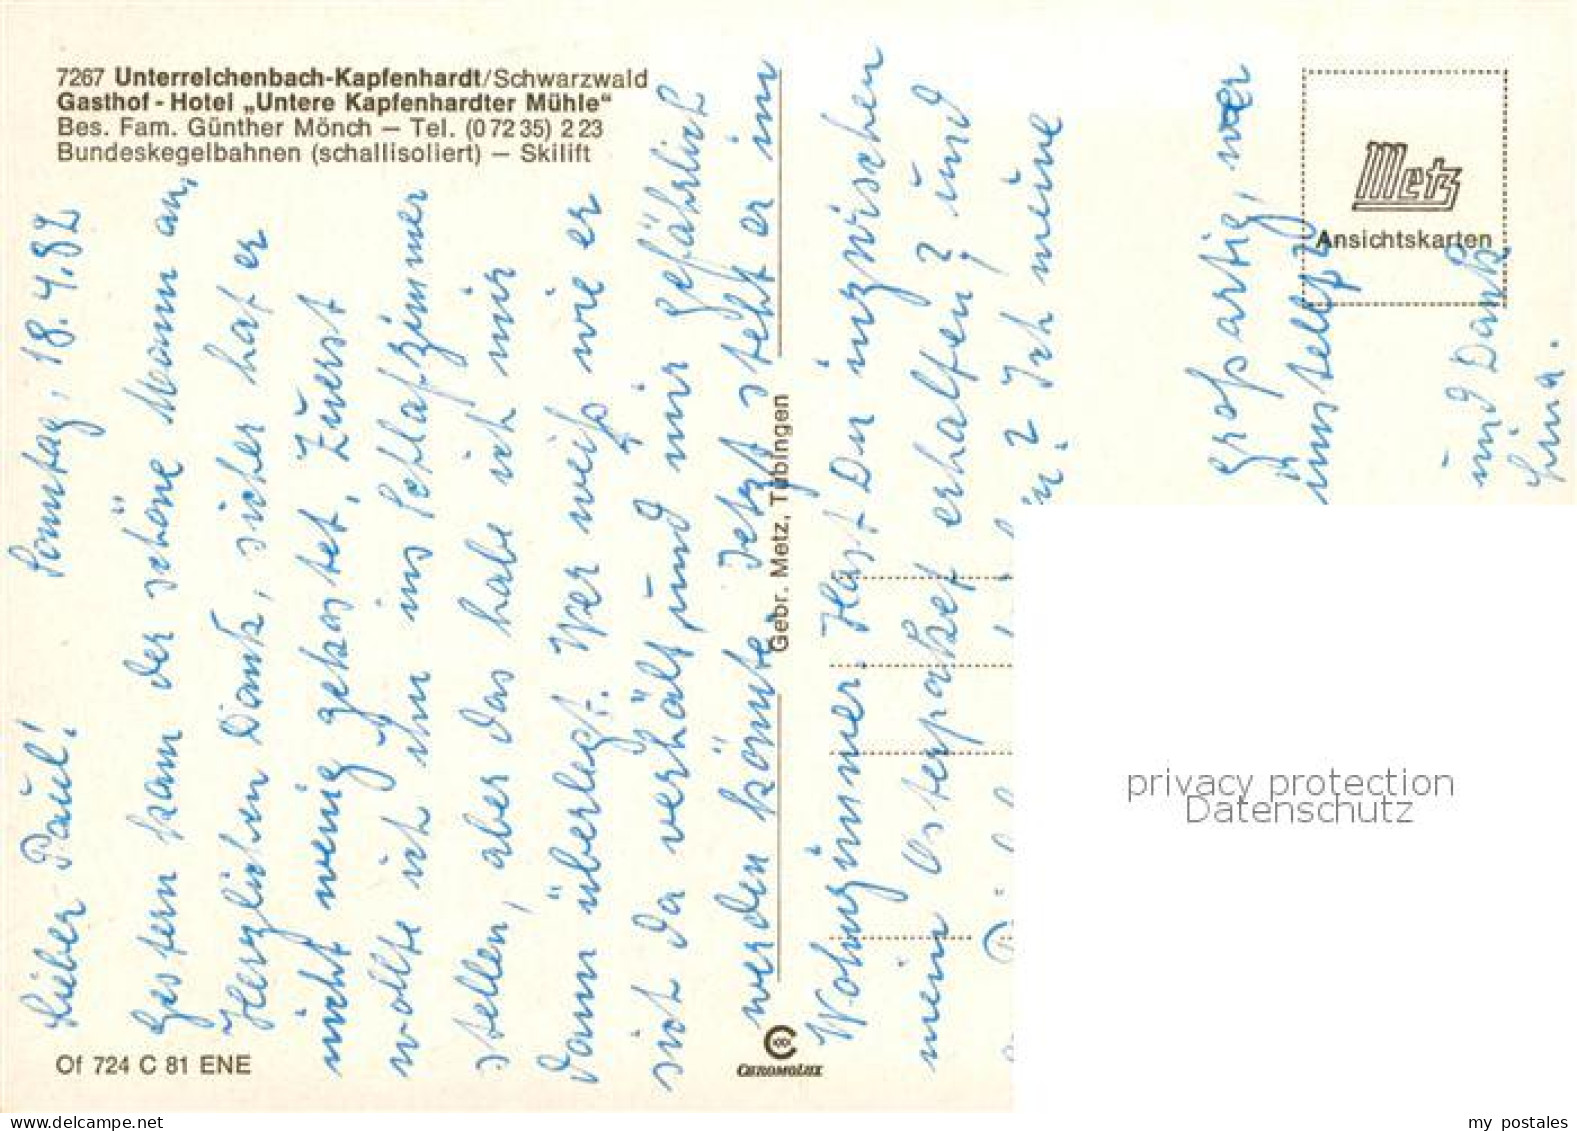 7267 Unterreichenbach-Kapfenhardt/Schwarzwald
Gasthof - Hotel „Untere Kapfenhardter Mühle“
Bes. Fam. Günther Mönch — Tel. (0 72 35) 2 23
Bundeskegelbahnen (schallisoliert) — Skilift
Metz
Ansichtskarten
Sonntag, 18.4.82
Lieber Paul!
Gestern kam der schöne Mann an,
Herzlichen Dank, sicher hat er
nicht wenig gekostet. Zuerst
wollte ich ihn ins Schlafzimmer
stellen, aber das habe ich mir
dann überlegt. Wer weiß wie er
sich da verhält und mir gefährlich
werden könnte. Jetzt steht er im
Wohnzimmer. Hast Du inzwischen
mein Osterpaket erhalten? und
? Ich meine
großartig, wer
und Dank
Lina.
Gebr. Metz, Tübingen
Of 724 C 81 ENE
CHROMOLUX
privacy protection
Datenschutz
my postales